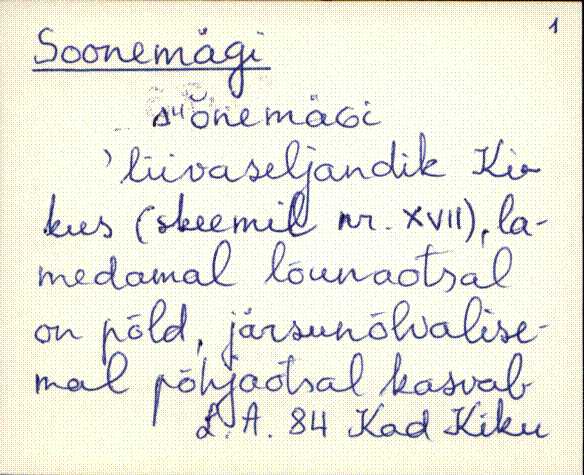 1
Soonemägi
sūōnemäGi
'liivaseljandik Kii-
kus (skeemil nr. XVII), la-
medamal lõunaotsal
on põld, järsunõlvalise-
mal põhjaotsal kasvab
L. A. 84 Kad Kiku